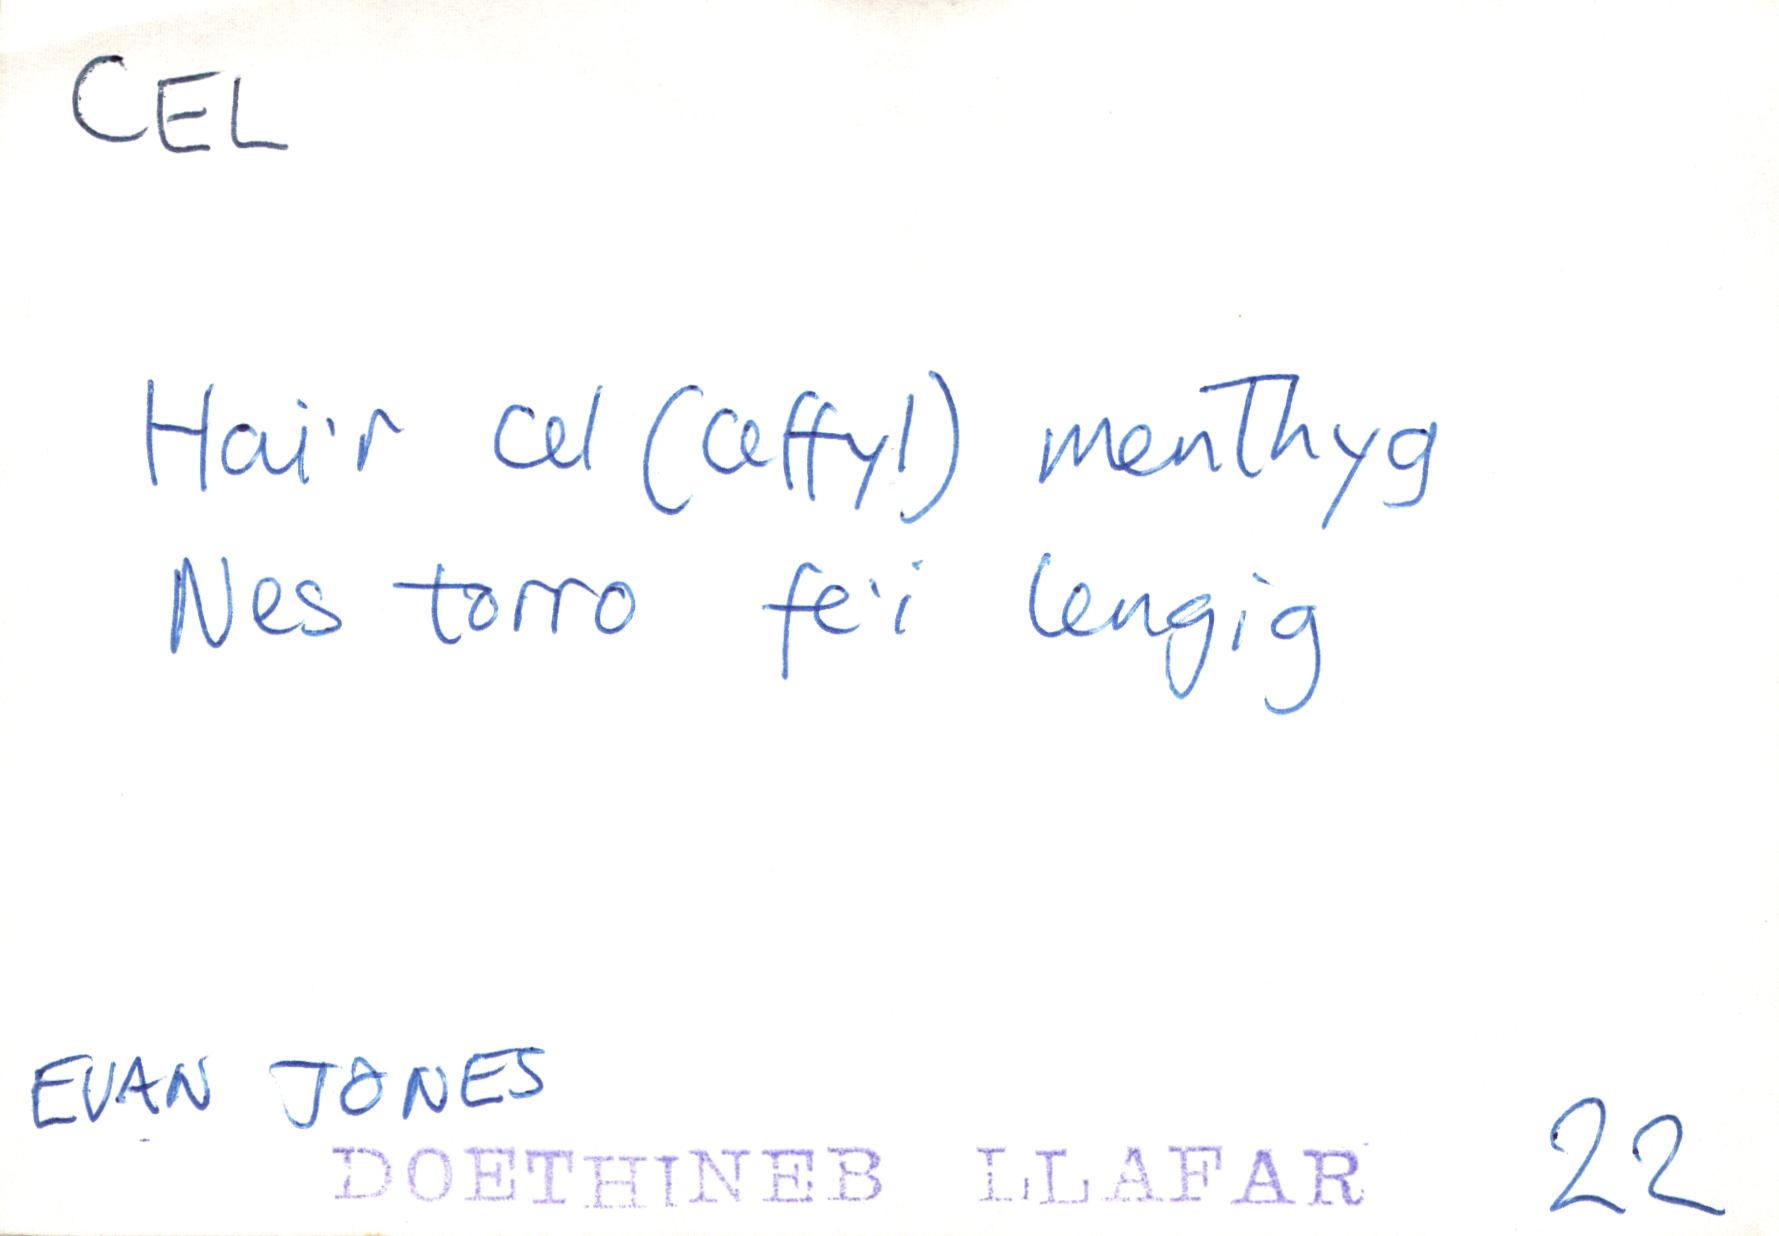 CEL
Hai'r cel (ceffyl) menthyg
Nes torro fe'i lengig
EVAN JONES
DOETHINEB LLAFAR
22